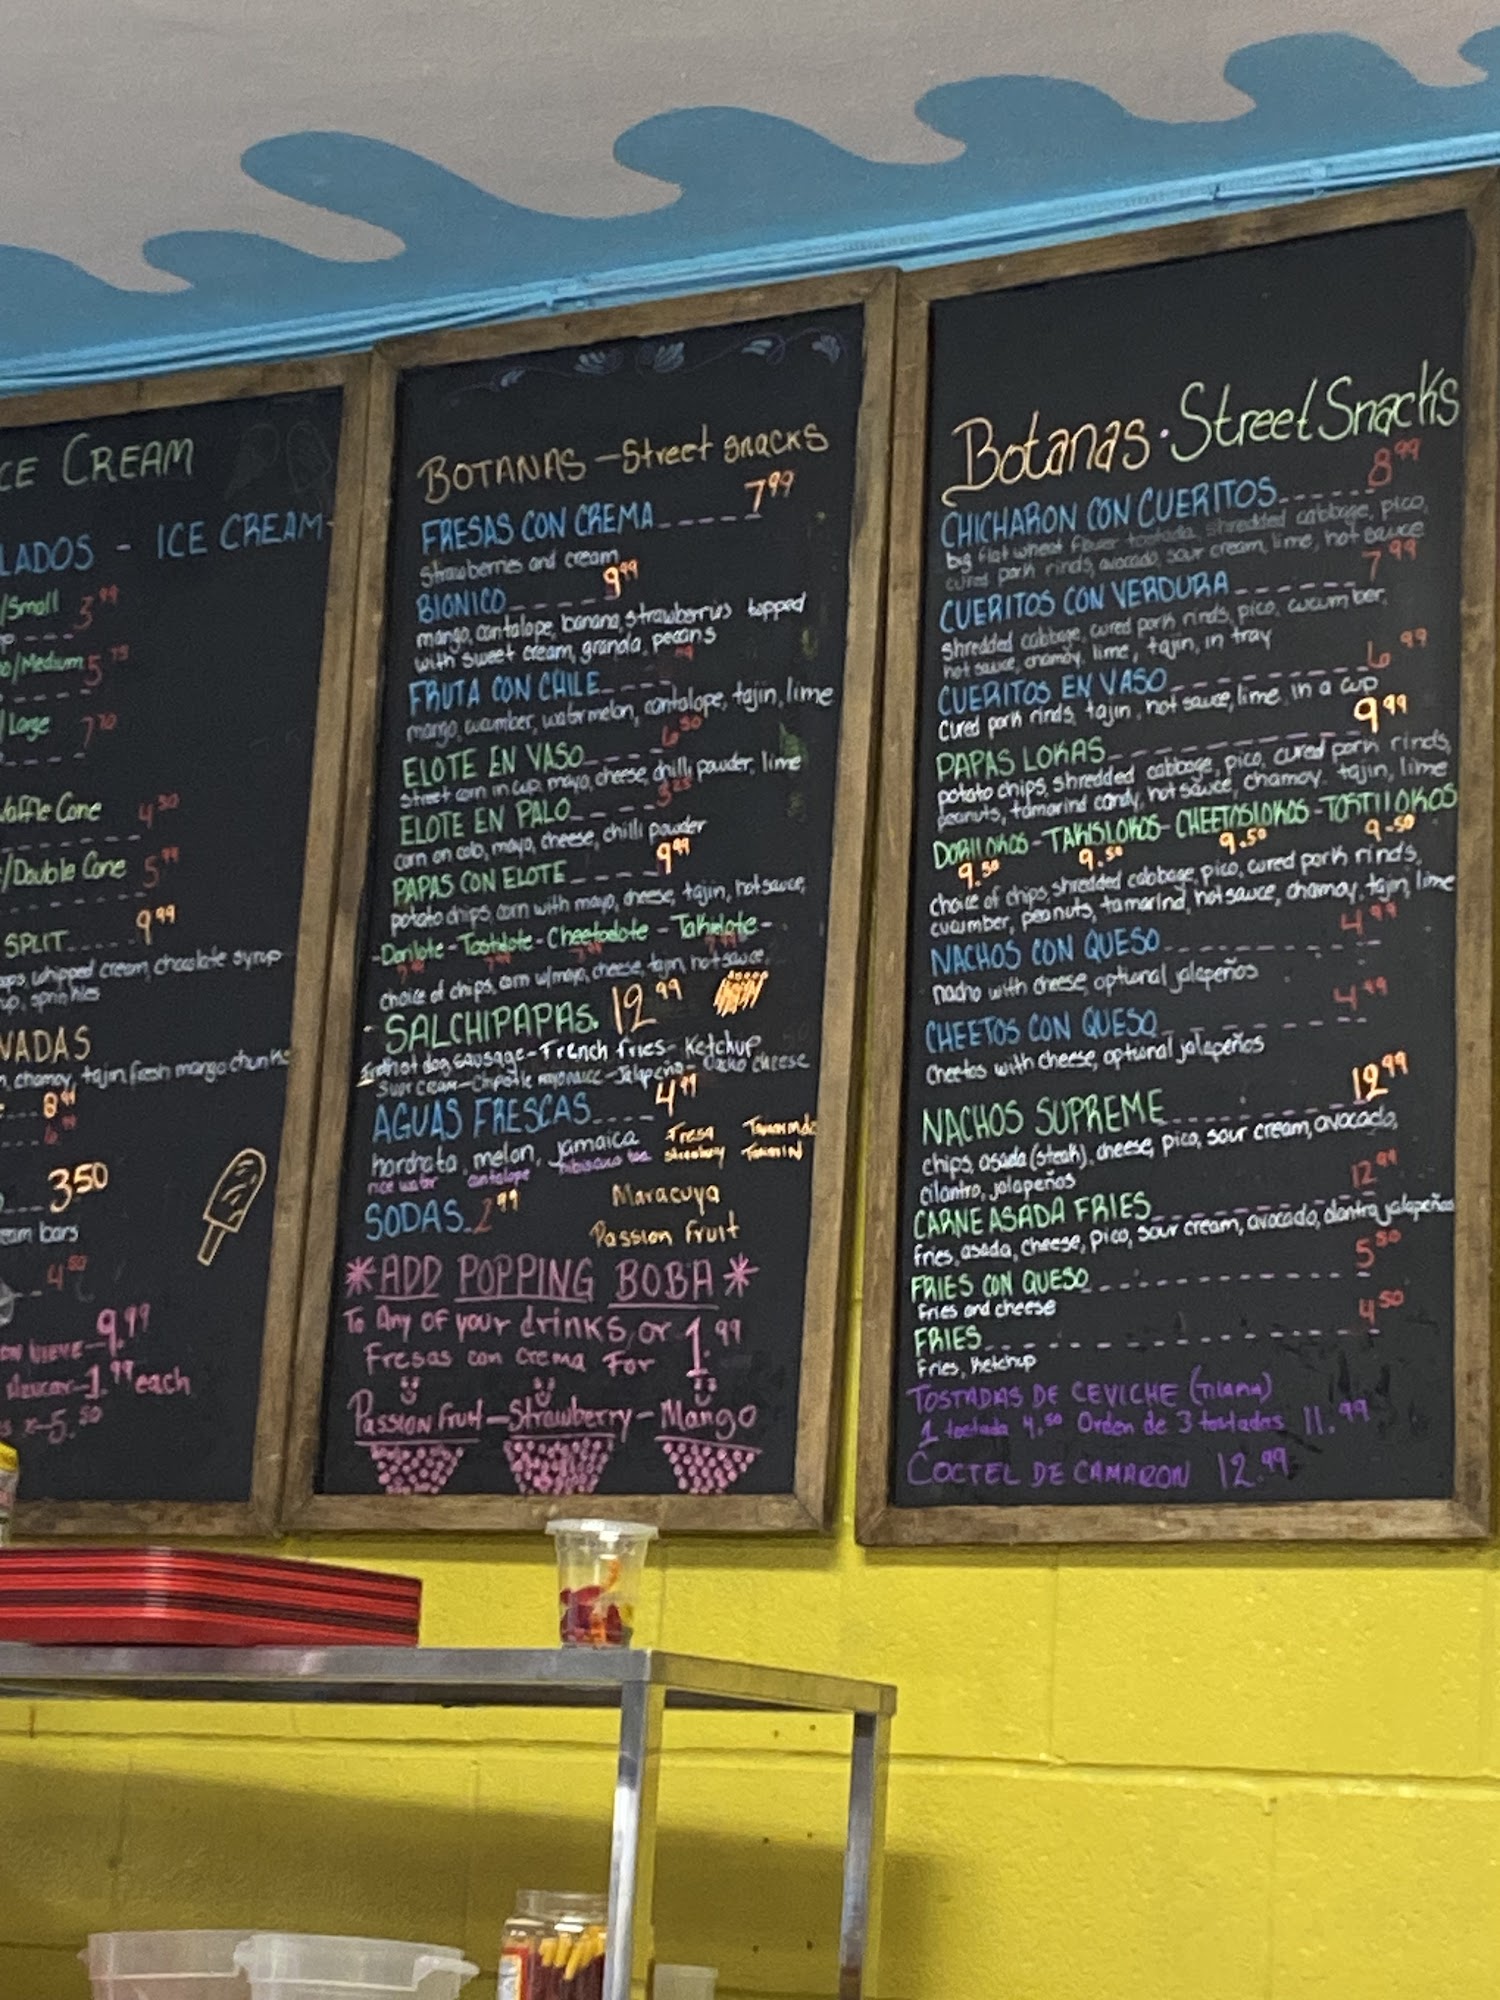 CE CREAM
LADOS - ICE CREAM
/Small 3.99
/Medium 5.75
/Large 7.70
Waffle Cone 4.50
/Double Cone 5.99
SPLIT 9.99
whipped cream, chocolate syrup
sprinkles
VADAS
chamoy, tajin, fresh mango chunks
8.99
6.99
3.50
eam bars
4.50
9.99
Azucar-1.99 each
5.50
BOTANAS - Street snacks
FRESAS CON CREMA 7.99
strawberries and cream
BIONICO 9.99
mango, cantalope, banana, strawberries topped
with sweet cream, granola, pecans
FRUTA CON CHILE
mango, cucumber, watermelon, cantalope, tajin, lime
ELOTE EN VASO 6.50
street corn in cup, mayo, cheese, chilli powder, lime
ELOTE EN PALO
corn on cob, mayo, cheese, chilli powder
PAPAS CON ELOTE 9.99
potato chips, corn with mayo, cheese, tajin, hot sauce,
-Dorilote-Tostilote-Cheetodote-Takilote-
choice of chips, corn w/mayo, cheese, tajin, hot sauce,
- SALCHIPAPAS. 12.99
hot dog sausage-French fries-Ketchup
sour cream-Chipotle mayonaice-Jalapeno- cheese
AGUAS FRESCAS 4.99
hordhata, melon, jamaica Fresa Tamarindo
rice water cantalope hibiscus tea strawberry
SODAS 2.99 Maracuya
Passion Fruit
*ADD POPPING BOBA*
To Any of your drinks, or 1.99
Fresas con crema For
Passion Fruit-Strawberry-Mango
Botanas·Street Snacks
CHICHARON CON CUERITOS 8.99
big flat wheat flower tostada, shredded cabbage, pico,
cured pork rinds, avocado, sour cream, lime, hot sauce
CUERITOS CON VERDURA 7.99
shredded cabbage, cured pork rinds, pico, cucumber,
hot sauce, chamoy, lime, tajin, in tray
CUERITOS EN VASO 6.99
cured pork rinds, tajin, hot sauce, lime, in a cup
PAPAS LOKAS 9.99
potato chips, shredded cabbage, pico, cured pork rinds,
peanuts, tamarind candy, hot sauce, chamoy, tajin, lime
DORILOKOS-TAKISLOKOS-CHEETOSLOKOS-TOSTILOKOS
9.50 9.50 9.50 9.50
choice of chips, shredded cabbage, pico, cured pork rinds,
cucumber, peanuts, tamarind, hot sauce, chamoy, tajin, lime
NACHOS CON QUESO 4.99
nacho with cheese, optional jalapeños
CHEETOS CON QUESO 4.99
cheetos with cheese, optional jalapeños
NACHOS SUPREME 12.99
chips, asada (steak), cheese, pico, sour cream, avocado,
cilantro, jalapeños
CARNE ASADA FRIES 12.99
fries, asada, cheese, pico, sour cream, avocado, cilantro, jalapeños
FRIES CON QUESO 5.50
fries and cheese
FRIES 4.50
fries, ketchup
TOSTADAS DE CEVICHE (Tilapia)
1 tostada 4.50 Orden de 3 tostadas 11.99
COCTEL DE CAMARON 12.99